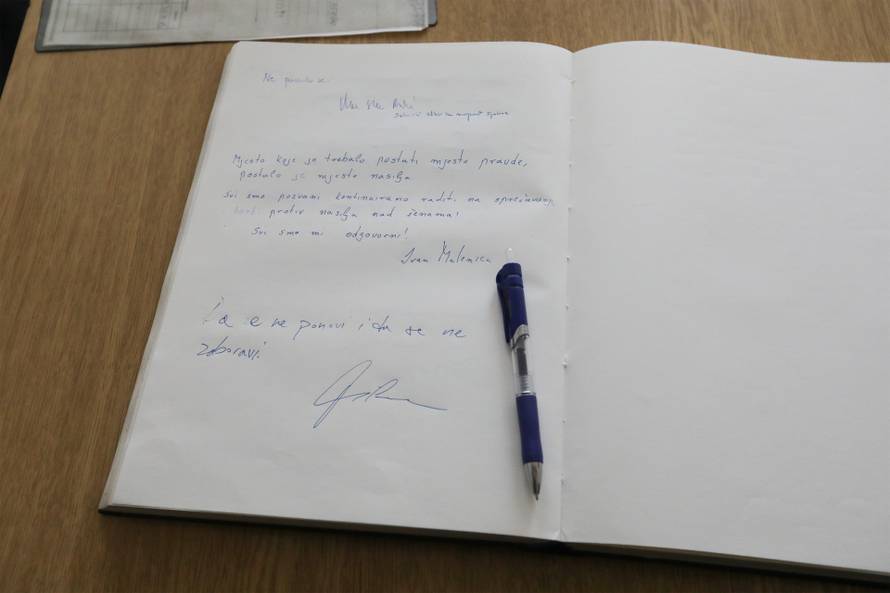 Ne ponovilo se.
Mjesto koje je trebalo postati mjesto pravde,
postalo je mjesto nasilja
Svi smo pozvani kontinuirano raditi na sprečavanju
borbi protiv nasilja nad ženama!
Svi smo mi odgovorni!
Ivan Malenica
Da se ne ponovi i da se ne
zaboravi!